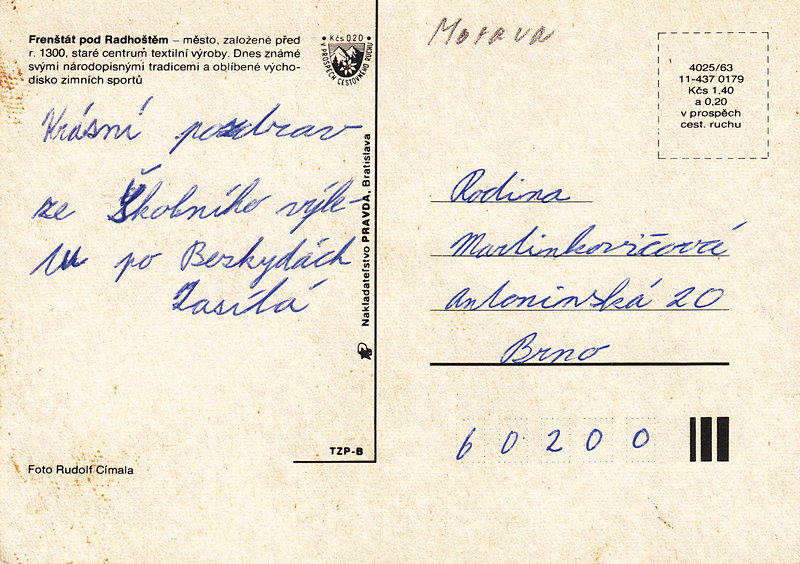 Frenštát pod Radhoštěm – město, založené před
r. 1300, staré centrum textilní výroby. Dnes známé
svými národopisnými tradicemi a oblíbené výcho-
disko zimních sportů
Kčs 020
V PROSPĚCH CESTOVNÉHO RUCHU
Krásní pozdrav
ze Školního výle-
tu po Beskydách
Zasílá
Foto Rudolf Címala
Nakladateľstvo PRAVDA, Bratislava
TZP-B
Morava
4025/63
11-437 0179
Kčs 1,40
a 0,20
v prospěch
cest. ruchu
Rodina
Martinkovičová
Antonínská 20
Brno
60200